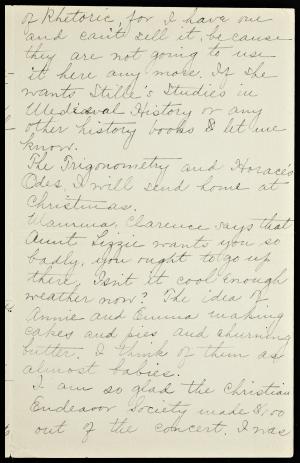 of Rhetoric, for I have one
and can't sell it, because
they are not going to use
it here any more. If she
wants Stille's Studies in
Mediæval History or any
other history books let me
know.
The Trigonometry and Horace's
Odes, I will send home at
Christmas.
Mamma, Clarence says that
Aunt Lizzie wants you so
badly, you ought to go up
there. Isn't it cool enough
weather now? The idea of
Annie and Emma making
cakes and pies and churning
butter. I think of them as
almost babies.
I am so glad the Christian
Endeavor Society made
out of the concert. I was